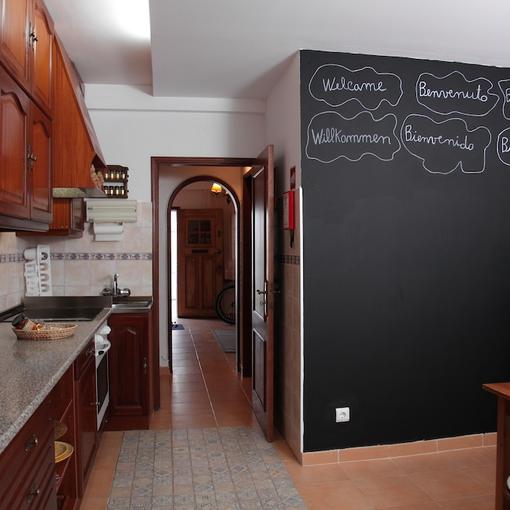 Welcame
Benvenuto
Willkommen
Bienvenido